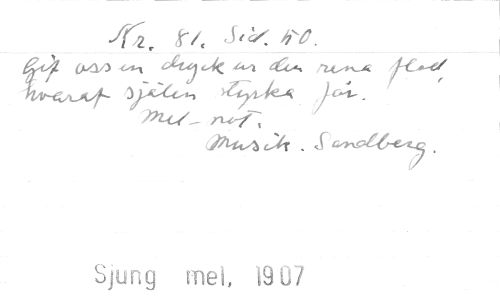 Nr. 81. Sid. 50.
Gif oss en dryck ur den rena flod,
hvaraf själen styrka får.
Mel-not.
Musik. Sandberg.
Sjung mel, 1907